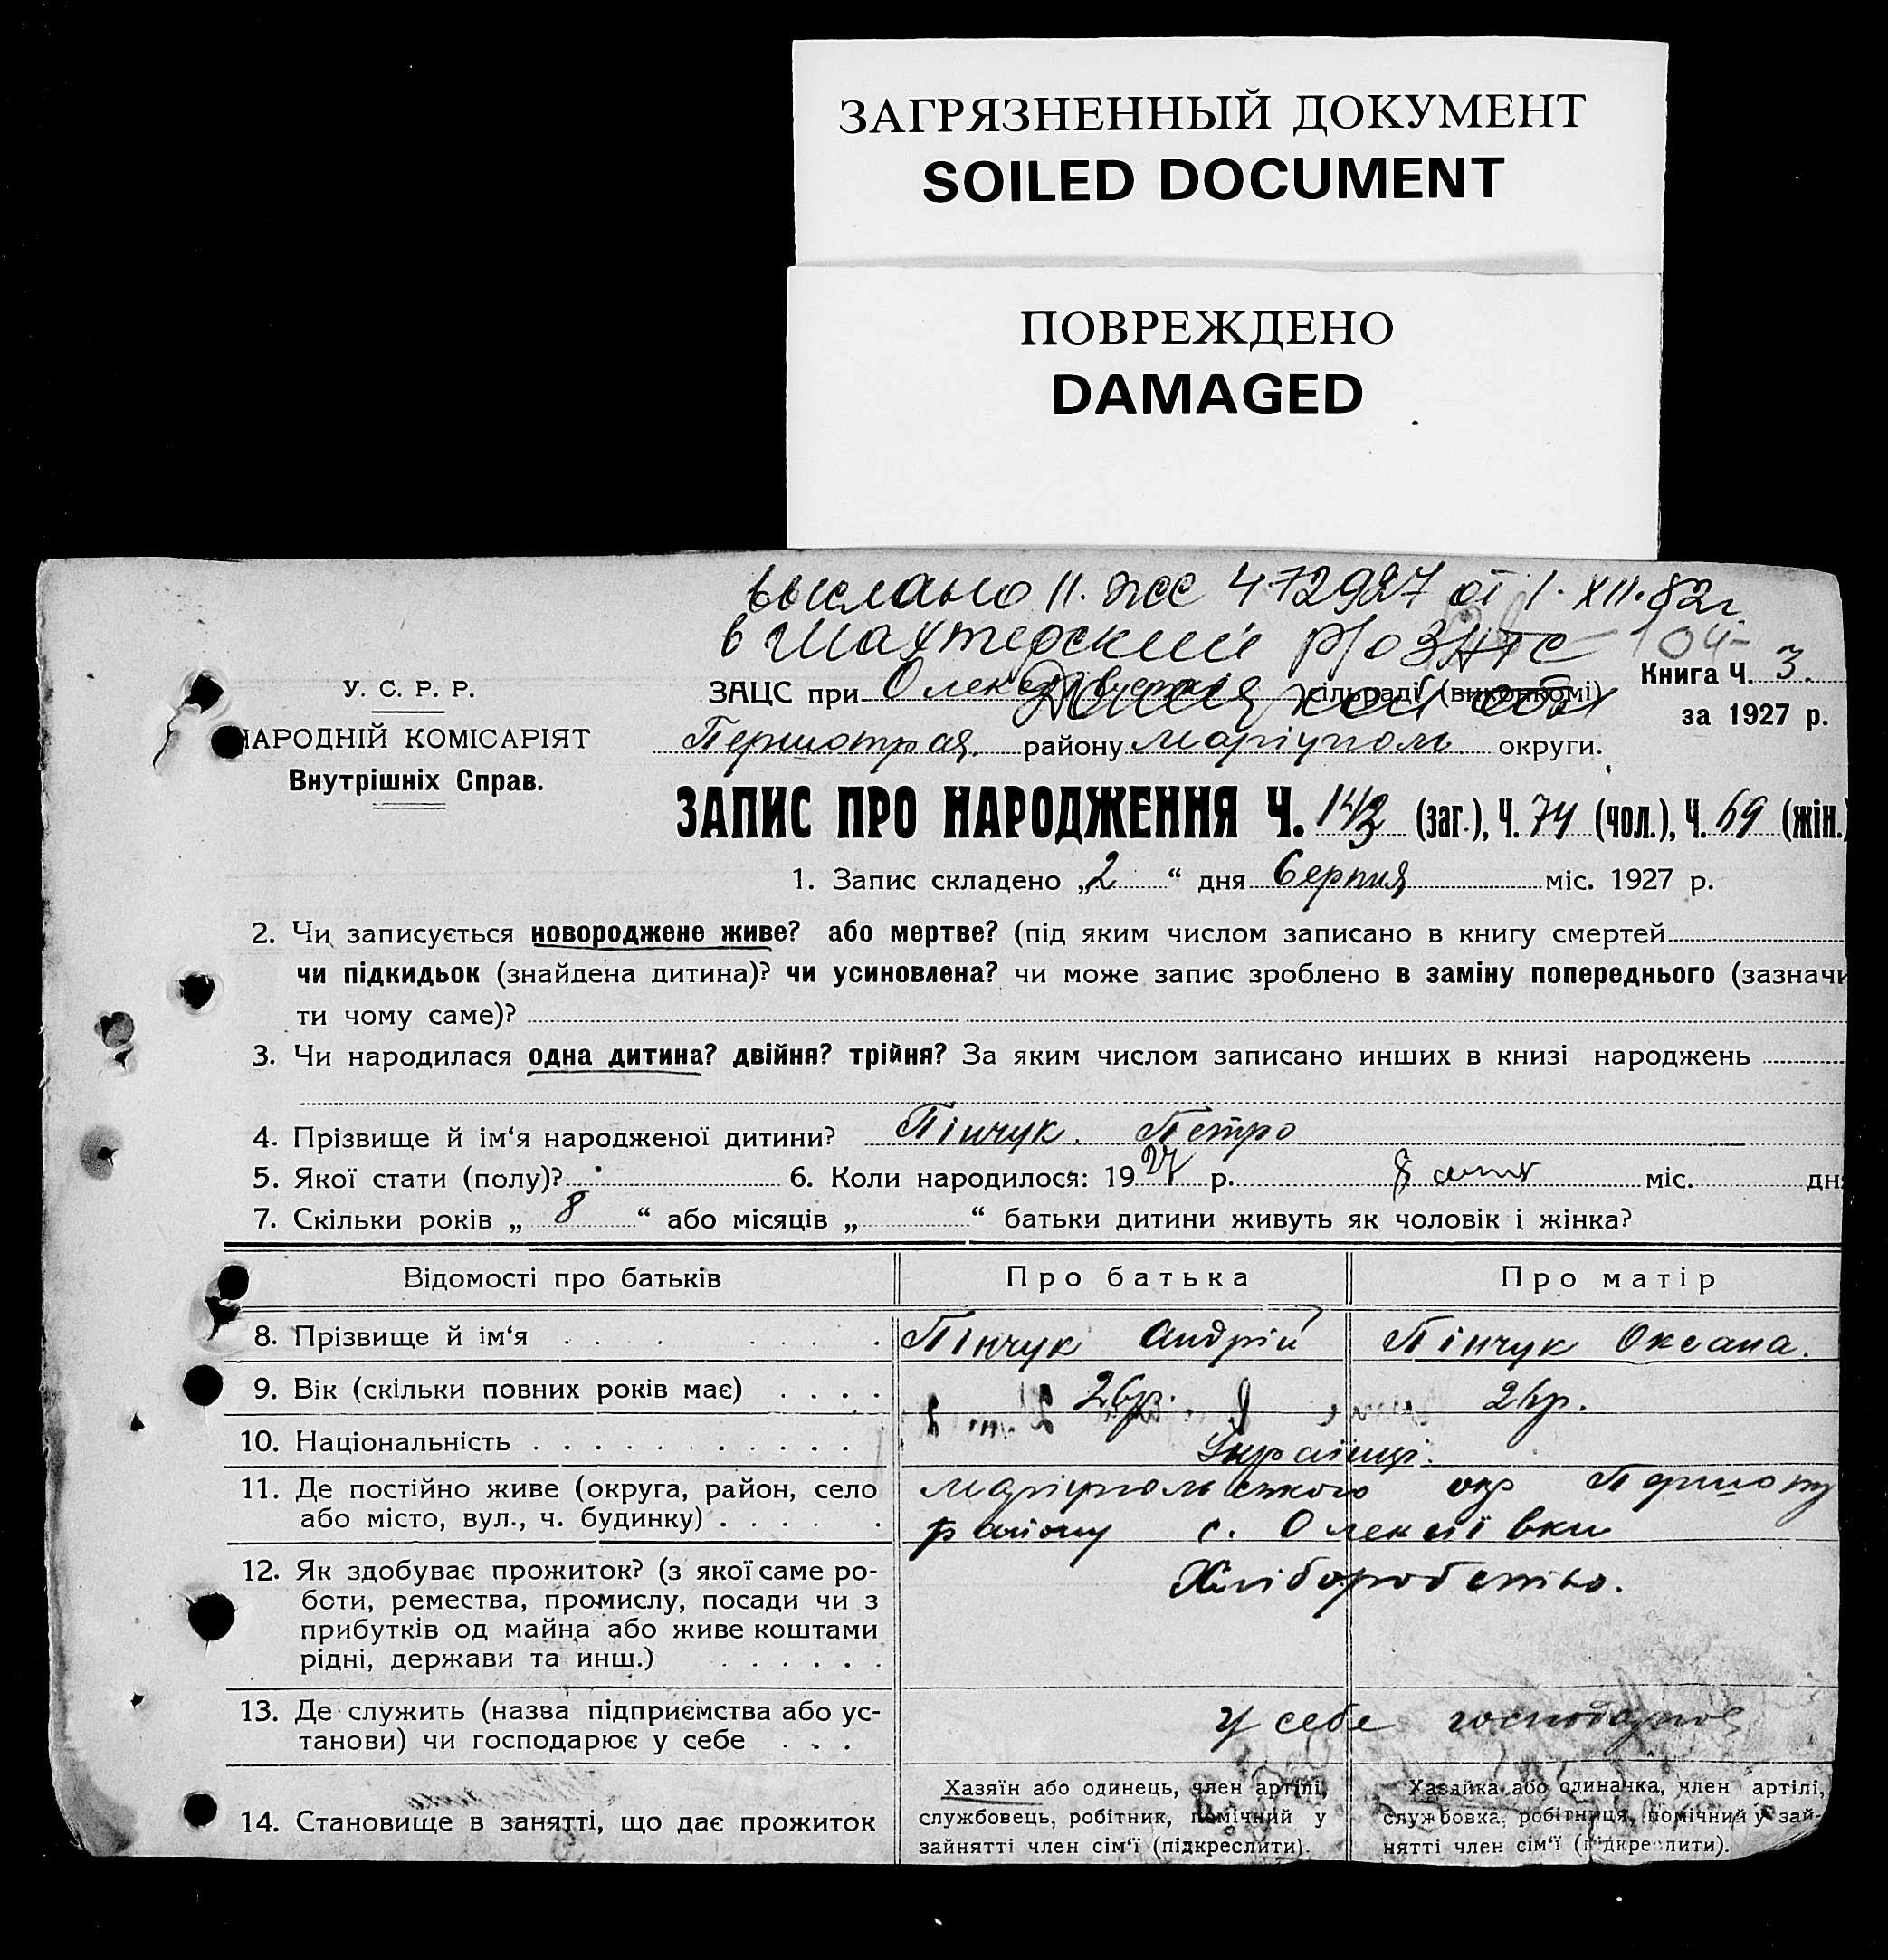 ЗАГРЯЗНЕННЫЙ ДОКУМЕНТ
SOILED DOCUMENT
ПОВРЕЖДЕНО
DAMAGED
выслано П. ЖС 472927 от 1. XII. 82г.
в Шахтерский р/о ЗАГС 104
Донецкой обл
У. С. Р. Р.
НАРОДНІЙ КОМІСАРІЯТ
Внутрішніх Справ.
ЗАЦС при сільраді (виконкомі)
Книга Ч. 3.
за 1927 р.
Першотрав. району Маріуполь округи.
ЗАПИС ПРО НАРОДЖЕННЯ Ч. 143 (заг.), Ч. 74 (чол.), Ч. 69 (жін.)
1. Запис складено „2“ дня Серпня міс. 1927 р.
2. Чи записується новороджене живе? або мертве? (під яким числом записано в книгу смертей
чи підкидьок (знайдена дитина)? чи усиновлена? чи може запис зроблено в заміну попереднього (зазначи
ти чому саме)?
3. Чи народилася одна дитина? двійня? трійня? За яким числом записано инших в книзі народжень
4. Прізвище й ім‘я народженої дитини? Пінчук Петро
5. Якої стати (полу)? 6. Коли народилося: 1927 р. 8 міс. дн
7. Скільки років „8“ або місяців „ “ батьки дитини живуть як чоловік і жінка?
Відомості про батьків Про батька Про матір
8. Прізвище й ім‘я . . . . . . . Пінчук Андрій Пінчук Оксана.
9. Вік (скільки повних років має) . . . . 26р. 26р.
10. Національність . . . . . . . . . . . Українці.
11. Де постійно живе (округа, район, село Маріупольського окр Першотр
або місто, вул., ч. будинку) . . . . . району с. Олексіївки
12. Як здобуває прожиток? (з якої саме ро- Хліборобство.
боти, ремества, промислу, посади чи з
прибутків од майна або живе коштами
рідні, держави та инш.) . . . . . .
13. Де служить (назва підприємства або ус- у себе господарює
танови) чи господарює у себе . . .
14. Становище в занятті, що дає прожиток
Хазяїн або одинець, член артілі,
службовець, робітник, помічний у
зайнятті член сім‘ї (підкреслити).
Хазяйка або одиначка, член артілі,
службовка, робітниця, помічний у зай-
нятті член сім‘ї (підкреслити).